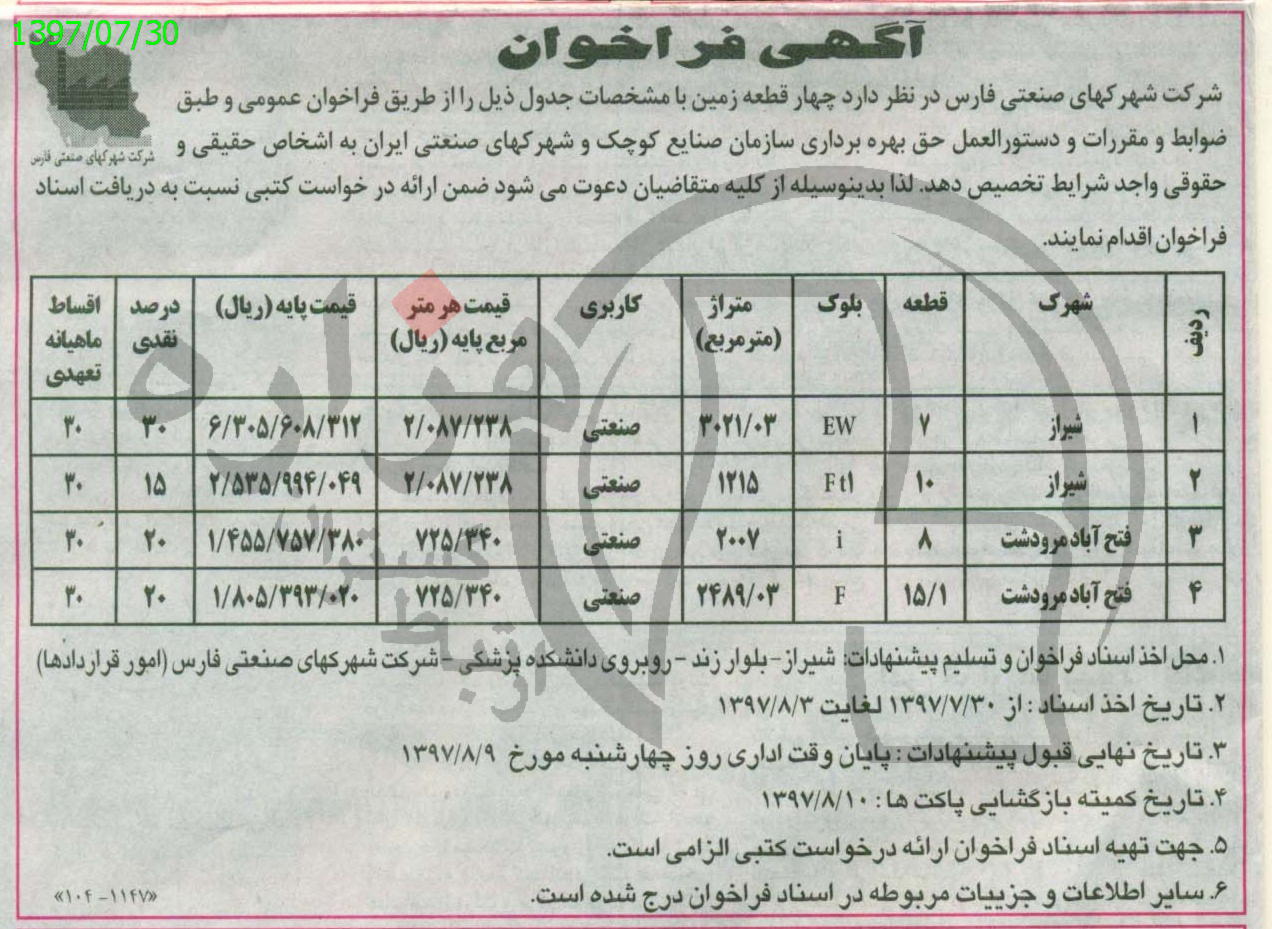 1397/07/30
آگهی فراخوان
شرکت شهرکهای صنعتی فارس
شرکت شهرکهای صنعتی فارس در نظر دارد چهار قطعه زمین با مشخصات جدول ذیل را از طریق فراخوان عمومی و طبق
ضوابط و مقررات و دستورالعمل حق بهره برداری سازمان صنایع کوچک و شهرکهای صنعتی ایران به اشخاص حقیقی و
حقوقی واجد شرایط تخصیص دهد. لذا بدینوسیله از کلیه متقاضیان دعوت می شود ضمن ارائه در خواست کتبی نسبت به دریافت اسناد
فراخوان اقدام نمایند.
ردیف شهرک قطعه بلوک متراژ (مترمربع) کاربری قیمت هر متر مربع پایه (ریال) قیمت پایه (ریال) درصد نقدی اقساط ماهیانه تعهدی
۱ شیراز ۷ EW ۳۰۲۱/۰۳ صنعتی ۲/۰۸۷/۲۳۸ ۶/۳۰۵/۶۰۸/۳۱۲ ۳۰ ۳۰
۲ شیراز ۱۰ Ft1 ۱۲۱۵ صنعتی ۲/۰۸۷/۲۳۸ ۲/۵۳۵/۹۹۴/۰۴۹ ۱۵ ۳۰
۳ فتح آباد مرودشت ۸ i ۲۰۰۷ صنعتی ۷۲۵/۳۴۰ ۱/۴۵۵/۷۵۷/۳۸۰ ۲۰ ۳۰
۴ فتح آباد مرودشت ۱۵/۱ F ۲۴۸۹/۰۳ صنعتی ۷۲۵/۳۴۰ ۱/۸۰۵/۳۹۳/۰۲۰ ۲۰ ۳۰
هزاره
ارتباط گستران
۱. محل اخذ اسناد فراخوان و تسلیم پیشنهادات: شیراز- بلوار زند - روبروی دانشکده پزشکی - شرکت شهرکهای صنعتی فارس (امور قراردادها)
۲. تاریخ اخذ اسناد : از ۱۳۹۷/۷/۳۰ لغایت ۱۳۹۷/۸/۳
۳. تاریخ نهایی قبول پیشنهادات : پایان وقت اداری روز چهارشنبه مورخ ۱۳۹۷/۸/۹
۴. تاریخ کمیته بازگشایی پاکت ها : ۱۳۹۷/۸/۱۰
۵. جهت تهیه اسناد فراخوان ارائه درخواست کتبی الزامی است.
۶. سایر اطلاعات و جزییات مربوطه در اسناد فراخوان درج شده است.
«۱۰۴-۱۱۴۷»